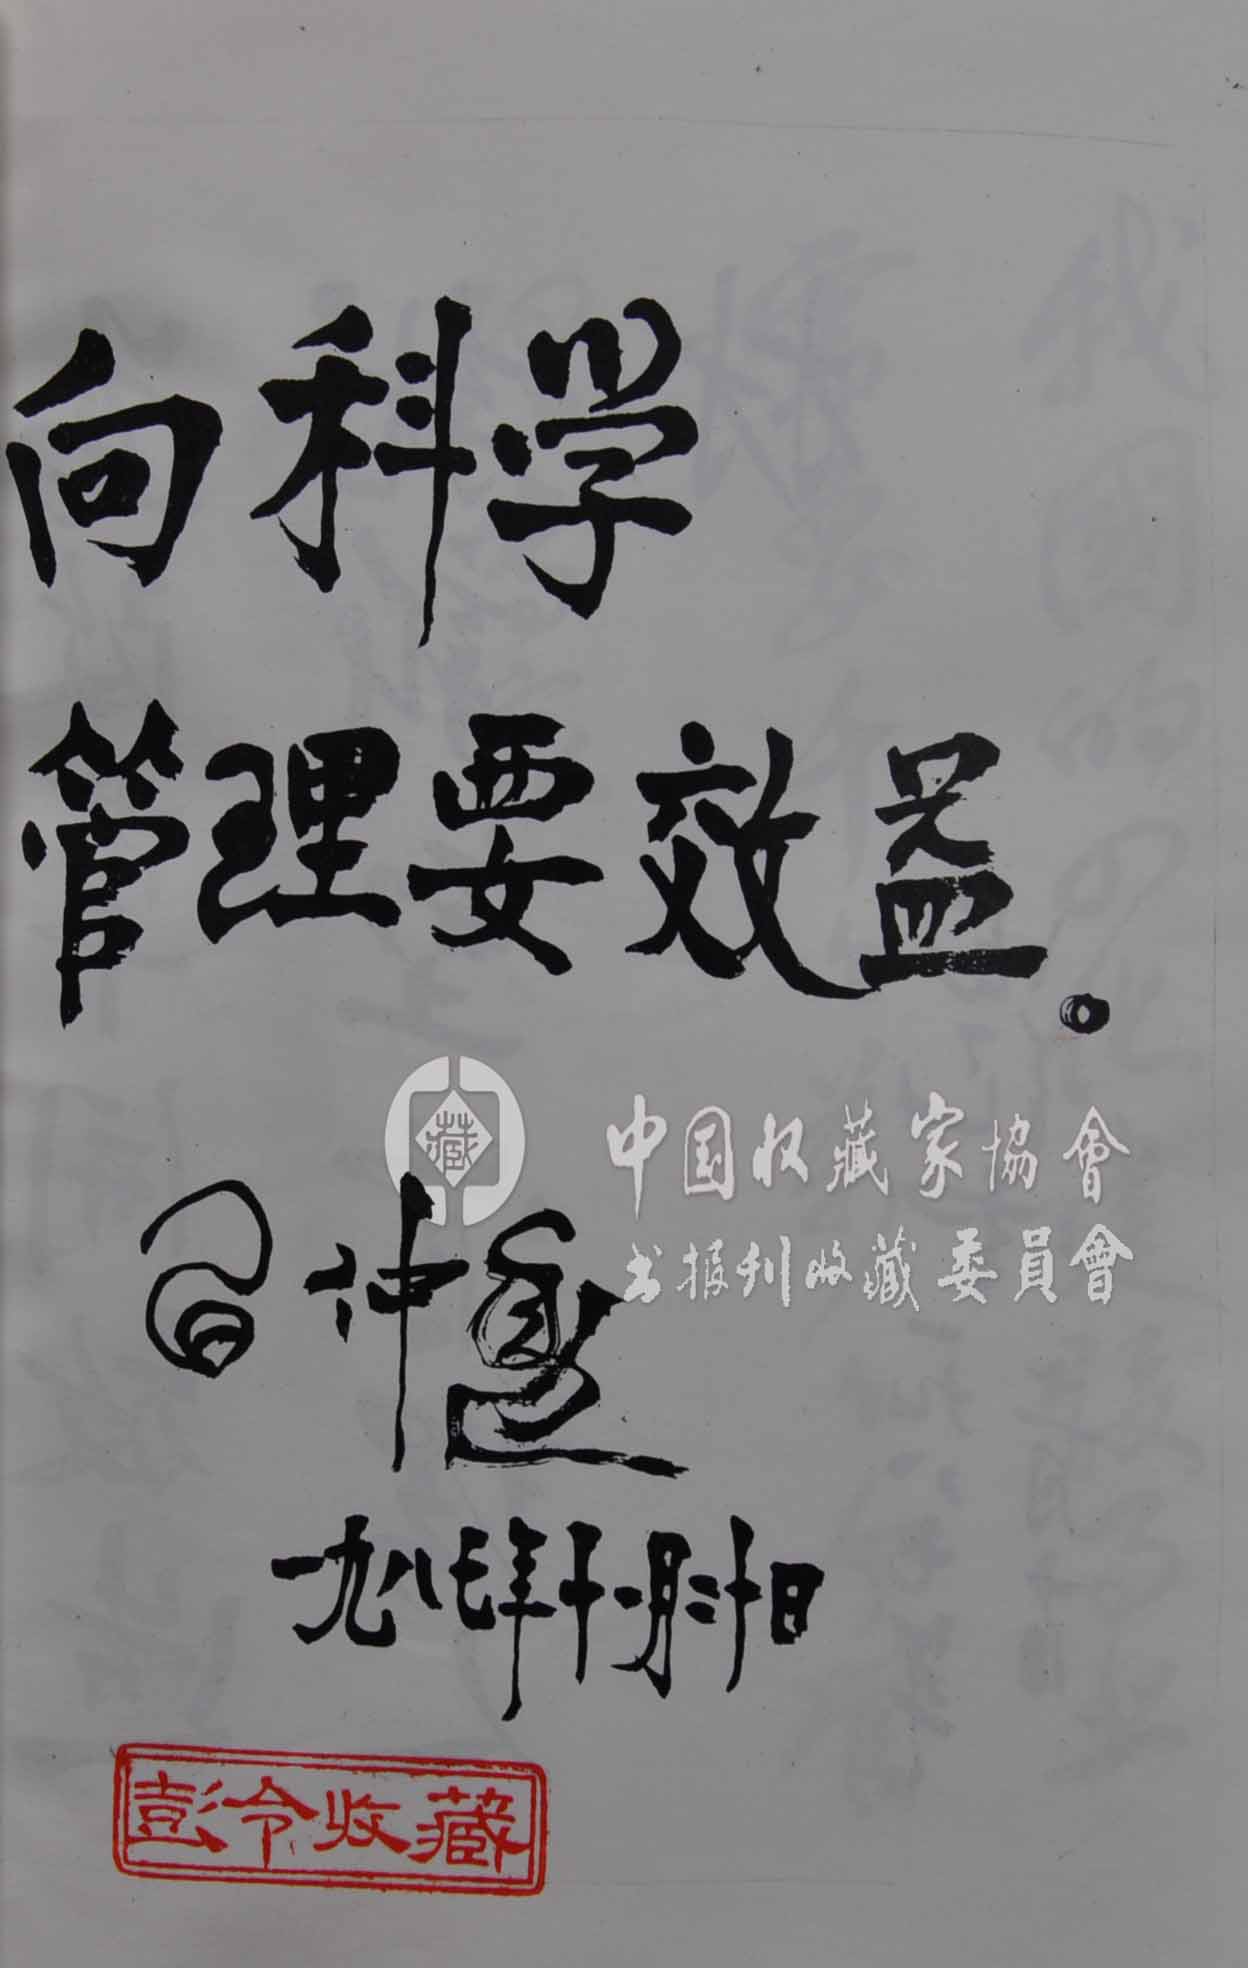 向科学
管理要效益。
中国收藏家協會
书报刊收藏委員會
藏
仲
一九八七年十一月二十日
彭令收藏